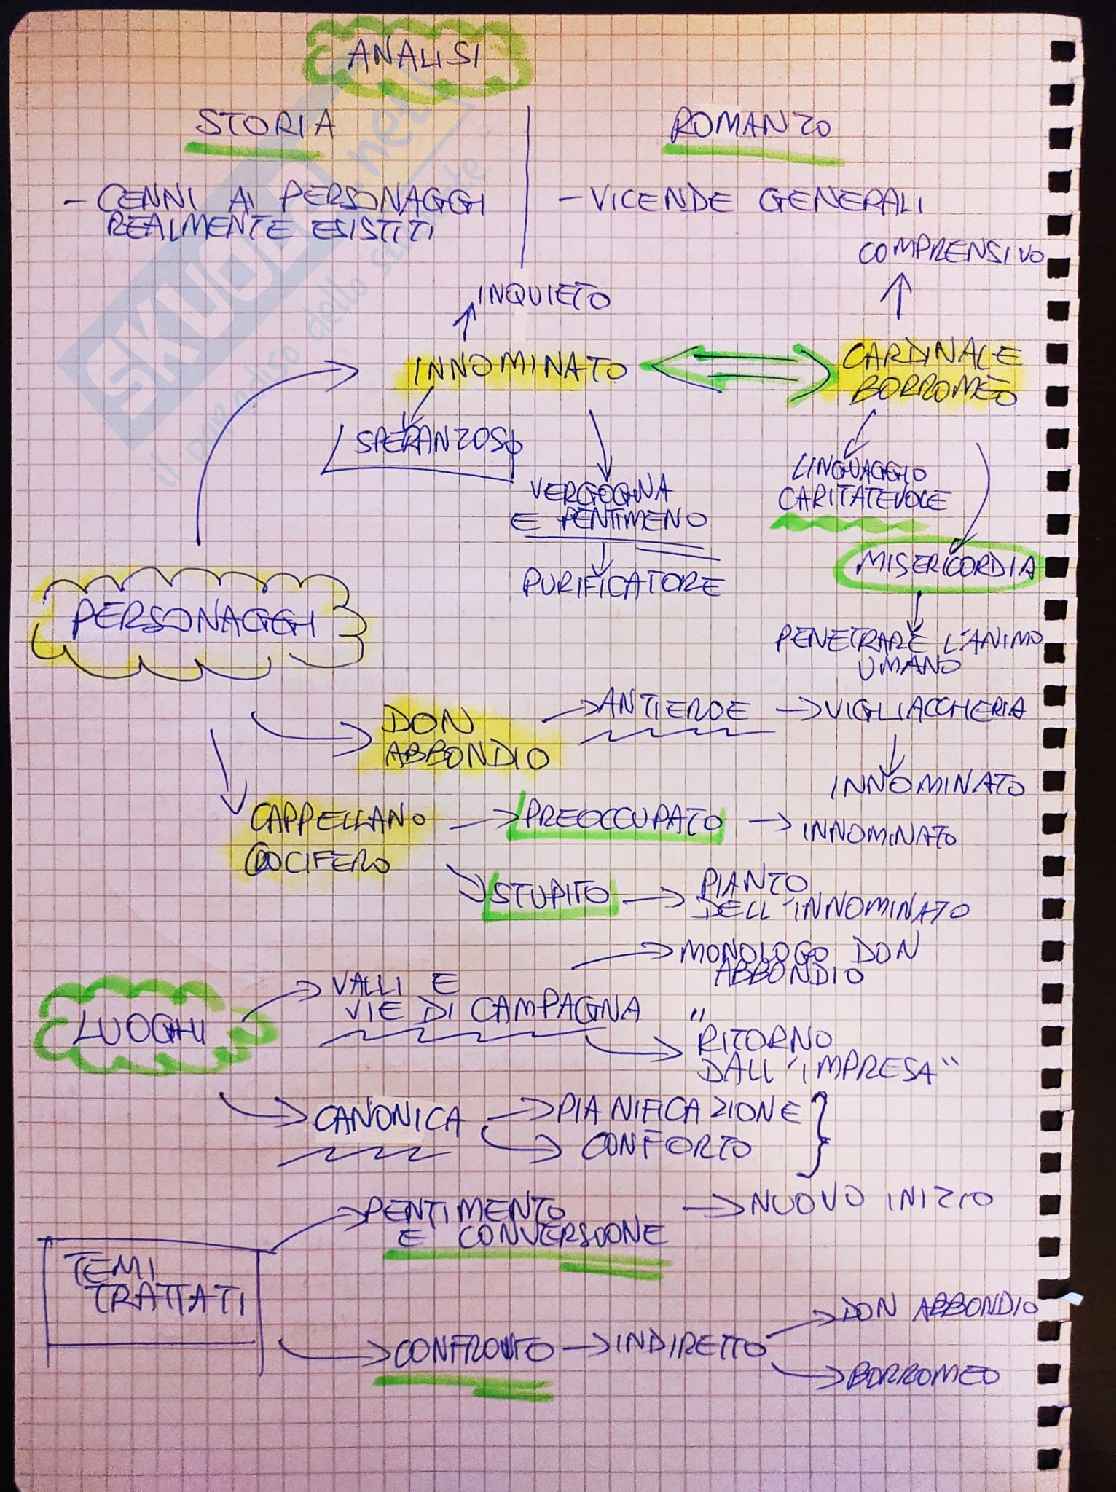 ANALISI
STORIA
ROMANZO
- CENNI AI PERSONAGGI
REALMENTE ESISTITI
- VICENDE GENERALI
COMPRENSIVO
INQUIETO
INNOMINATO
CARDINALE
BORROMEO
SPERANZOSO
VERGOGNA
E PENTIMENO
PURIFICATORE
LINGUAGGIO
CARITATEVOLE
MISERICORDIA
PENETRARE L'ANIMO
UMANO
PERSONAGGI
DON
ABBONDIO
ANTIEROE
VIGLIACCHERIA
INNOMINATO
CAPPELLANO
CROCIFERO
PREOCCUPATO
INNOMINATO
STUPITO
PIANTO
DELL'INNOMINATO
LUOGHI
VALLI E
VIE DI CAMPAGNA
MONOLOGO DON
ABBONDIO
"
RITORNO
DALL'IMPRESA"
CANONICA
PIANIFICAZIONE
CONFORTO
TEMI
TRATTATI
PENTIMENTO
E CONVERSIONE
NUOVO INIZIO
CONFRONTO
INDIRETTO
DON ABBONDIO
BORROMEO
SKUOLA.net